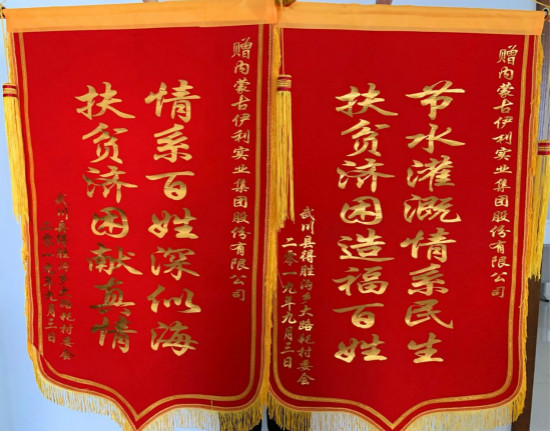 赠内蒙古伊利实业集团股份有限公司
情系百姓深似海
扶贫济困献真情
武川县得胜沟乡大路耗村委会
二零一九年九月三日
赠内蒙古伊利实业集团股份有限公司
节水灌溉情系民生
扶贫济困造福百姓
武川县得胜沟乡大路耗村委会
二零一九年九月三日